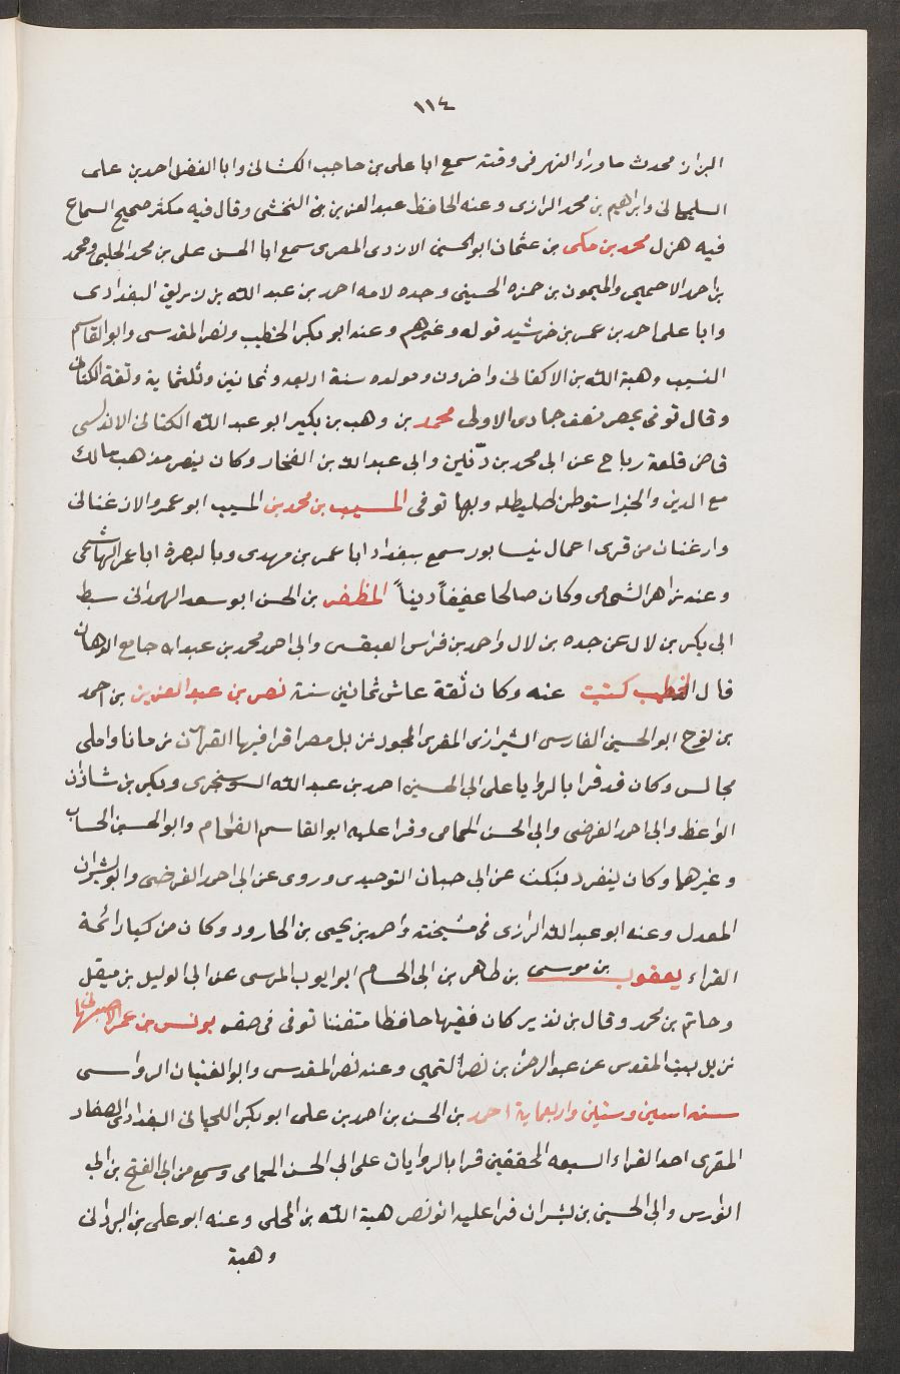 ١١٤
البزاز محدث ماوراء النهر فى وقته سمع ابا على بن حاجب الكشانى وابا الفضل احمد بن على
السليمانى وابراهيم بن محمد الرازى وعنه الحافظ عبد العزيز بن النخشى وقال فيه مكثر صحيح السماع
فيه هزل محمد بن مكى بن عثمان ابو الحسين الازدى المصرى سمع ابا الحسن على بن محمد الحلبى ومحمد
بن احمد الاخميمى والميمون بن حمزه الحسينى وجده لامه احمد بن عبد الله بن رزيق البغدادى
وابا على احمد بن عمر بن خرشيد قوله وغيرهم وعنه ابو بكر الخطيب ونصر المقدسى وابو القاسم
النسيب وهبة الله بن الاكفانى واخرون ومولده سنة اربعه وثمانين وثلثماية وثقة الكتانى
وقال توفى بمصر نصف جمادى الاولى محمد بن وهب بن بكير ابو عبد الله الكتانى الاندلسى
قاضى قلعة رباح عن ابى محمد بن دنّين وابى عبد الله بن الفخار وكان ينصر مذهب مالك
مع الدين والخير استوطن طليطله وبها توفى المسيب بن محمد بن المسيب ابو عمرو الارغنانى
وارغنان من قرى اعمال نيسابور سمع ببغداد ابا عمر بن مهدى وبالبصرة ابا عمر الهاشمى
وعنه زاهر الشحامى وكان صالحا عفيفاً ديناً المظفر بن الحسن ابو سعد الهمدانى سبط
ابى بكر بن لال عن جده بن لال واحمد بن فراس العبقسى وابى احمد محمد بن عبد الله جامع الدهان
قال الخطيب كتبت عنه وكان ثقة عاش ثمانين سنة نصر بن عبد العزيز بن احمد
بن نوح ابو الحسين الفارسى الشيرازى المقرى المجود نزيل مصر اقرا فيها القرآن زمانا واملى
مجالس وكان قد قرا بالروايا على ابى الحسين احمد بن عبد الله السوسنجردى وبكر بن شاذان
الواعظ وابى احمد الفرضى وابى الحسن الحمامى وقرا عليه ابو القاسم الفحام وابو الحسين الخشاب
وغيرهما وكان ينفرد بنكت عن ابى حيان التوحيدى وروى عن ابى احمد الفرضى وابو بشران
المعدل وعنه ابو عبد الله الرازى فى مشيخته واحمد بن يحيى بن الجارود وكان من كبار ائمة
القراء يعقوب بن موسى بن طاهر بن ابى الحسام ابو ايوب المرسى عن ابى الوليد بن ميقل
وحاتم بن محمد وقال بن نذير كان فقيها حافظا متفننا توفى فى صفر يونس بن عمر الاصبهانى
نزيل بيت المقدس عن عبد الرحمن بن نصر التميمى وعنه نصر المقدسى وابو الفتيان الرواسى
سنه اسين وستين واربعماية احمد بن الحسن بن احمد بن على ابو بكر اللحيانى البغدادى الصفار
المقرى احد القراء السبعه المحققين قرا بالروايات على ابى الحسن الحمامى وسمع من ابى الفتح بن ابى
الفوارس وابى الحسين بن بشران قرا عليه ابو نصر هبة الله بن المجلى وعنه ابو على بن البردانى
وهبة